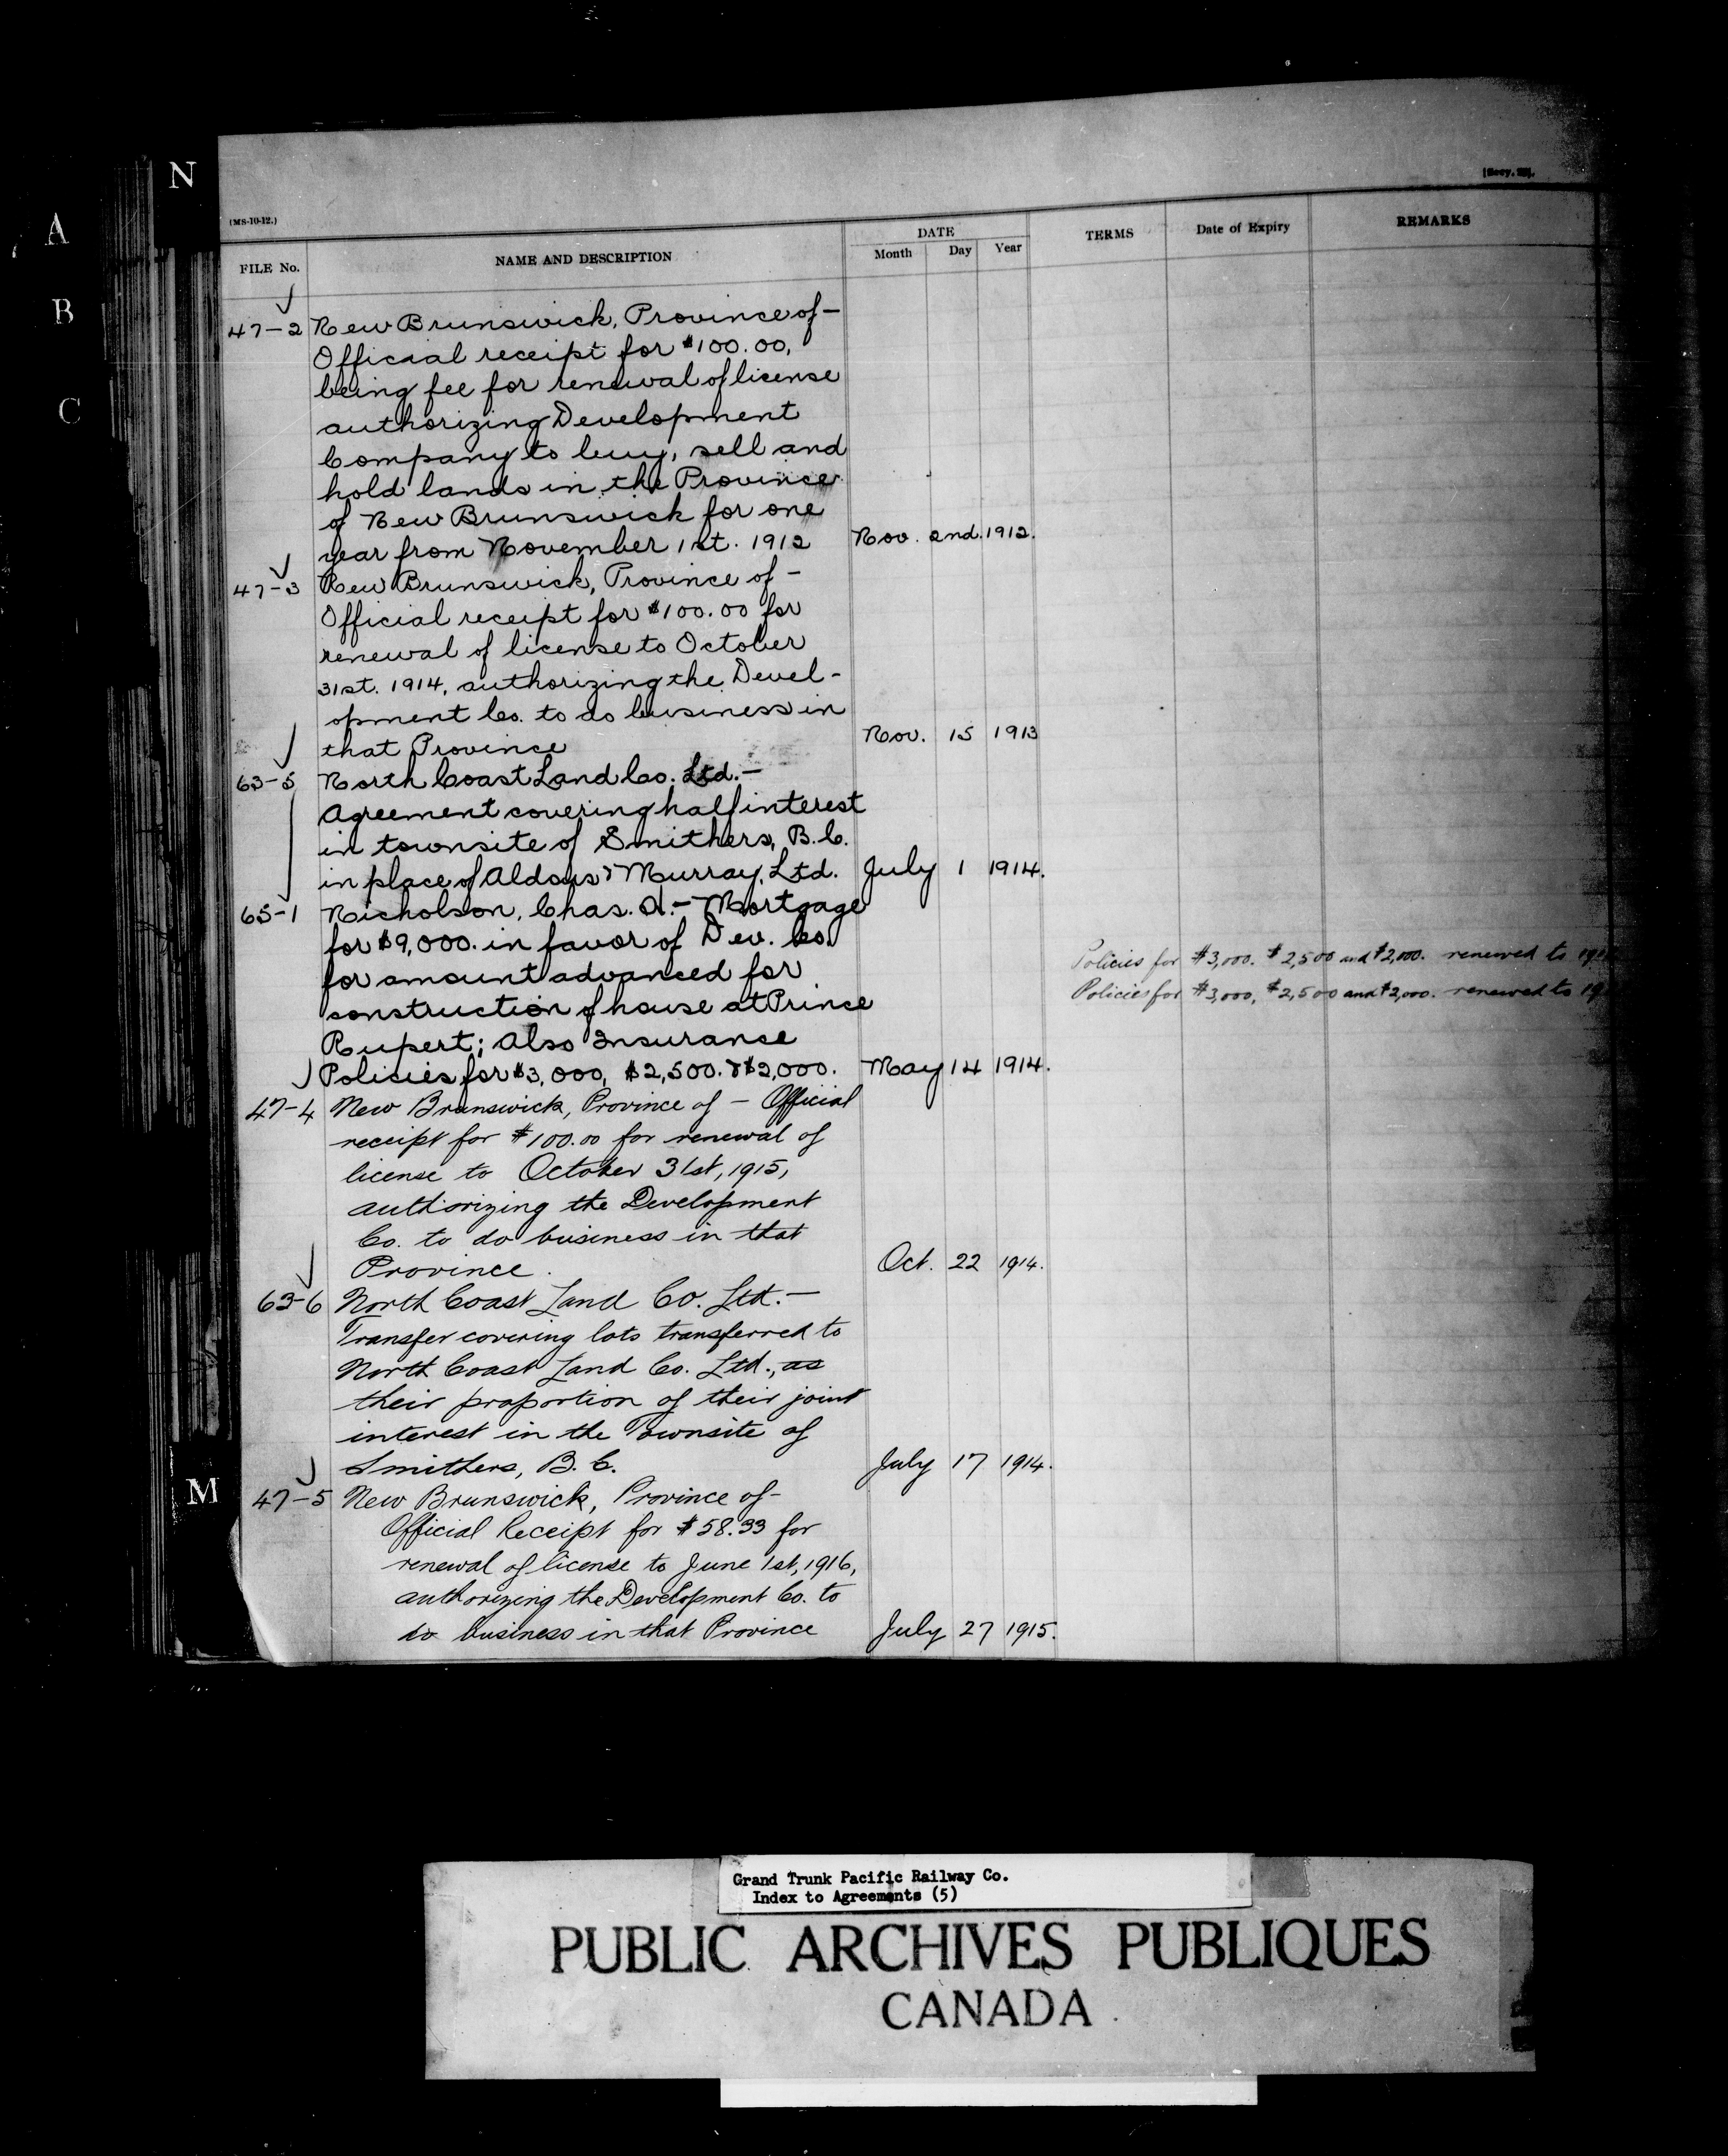 N
A
B
C
M
(MS-10-12.)
FILE No.
NAME AND DESCRIPTION
DATE
Month Day Year
TERMS
Date of Expiry
REMARKS
47-2 New Brunswick, Province of-
Official receipt for $100.00,
being fee for renewal of license
authorizing Development
Company to buy, sell and
hold lands in the Province
of New Brunswick for one
year from November 1st. 1912 Nov. 2nd. 1912.
47-3 New Brunswick, Province of -
Official receipt for $100.00 for
renewal of license to October
31st. 1914, authorizing the Devel-
opment Co. to do business in
that Province Nov. 15 1913
63-5 North Coast Land Co. Ltd.-
Agreement covering half interest
in townsite of Smithers, B.C.
in place of Aldous & Murray, Ltd. July 1 1914.
65-1 Nicholson, Chas. A.- Mortgage
for $9,000. in favor of Dev. Co.
for amount advanced for
construction of house at Prince
Rupert; Also Insurance
Policies for $3,000, $2,500. & $2,000. May 14 1914.
Policies for $3,000. $2,500 and $2,000. renewed to
Policies for $3,000, $2,500 and $2,000. renewed to
47-4 New Brunswick, Province of - Official
receipt for $100.00 for renewal of
license to October 31st, 1915,
authorizing the Development
Co. to do business in that
Province. Oct. 22 1914.
63-6 North Coast Land Co. Ltd.-
Transfer covering lots transferred to
North Coast Land Co. Ltd., as
their proportion of their joint
interest in the Townsite of
Smithers, B.C. July 17 1914.
47-5 New Brunswick, Province of-
Official Receipt for $58.33 for
renewal of license to June 1st, 1916,
authorizing the Development Co. to
do business in that Province July 27 1915.
Grand Trunk Pacific Railway Co.
Index to Agreements (5)
PUBLIC ARCHIVES PUBLIQUES
CANADA